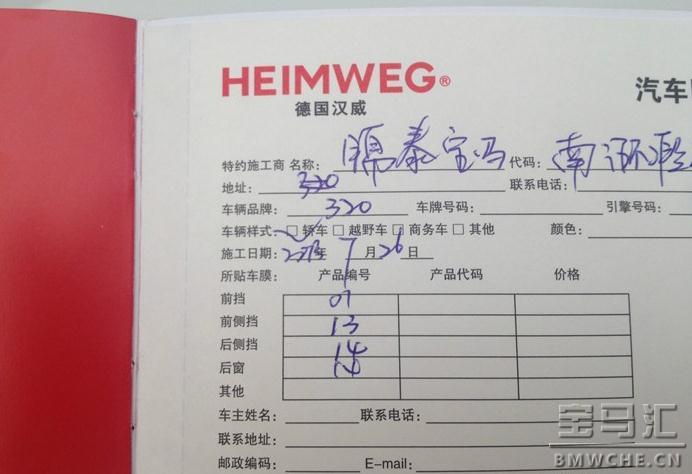 HEIMWEG®
德国汉威
汽车
特约施工商 名称: 隔泰宝马 代码: 南
地址: 320 联系电话:
车辆品牌: 320 车牌号码: 引擎号码:
车辆样式: □ 轿车 □ 越野车 □ 商务车 □ 其他 颜色:
施工日期: 年 7 月 26 日
所贴车膜: 产品编号 产品代码 价格
前挡 07
前侧挡 13
后侧挡 14
后窗 14
其他
车主姓名: 联系电话:
联系地址:
邮政编码: E-mail:
宝马汇
BMWCHE.CN